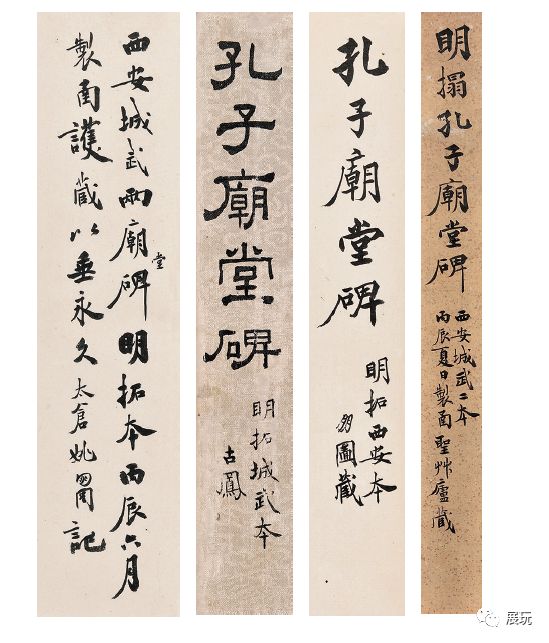 明搨孔子廟堂碑
西安城武二本
丙辰夏日製函聖艸廬藏
孔子廟堂碑
明拓西安本
圖藏
孔子廟堂碑
明拓城武本
古鳳
西安城武兩廟堂碑明拓本丙辰六月
製函護藏以垂永久太倉姚記
展玩